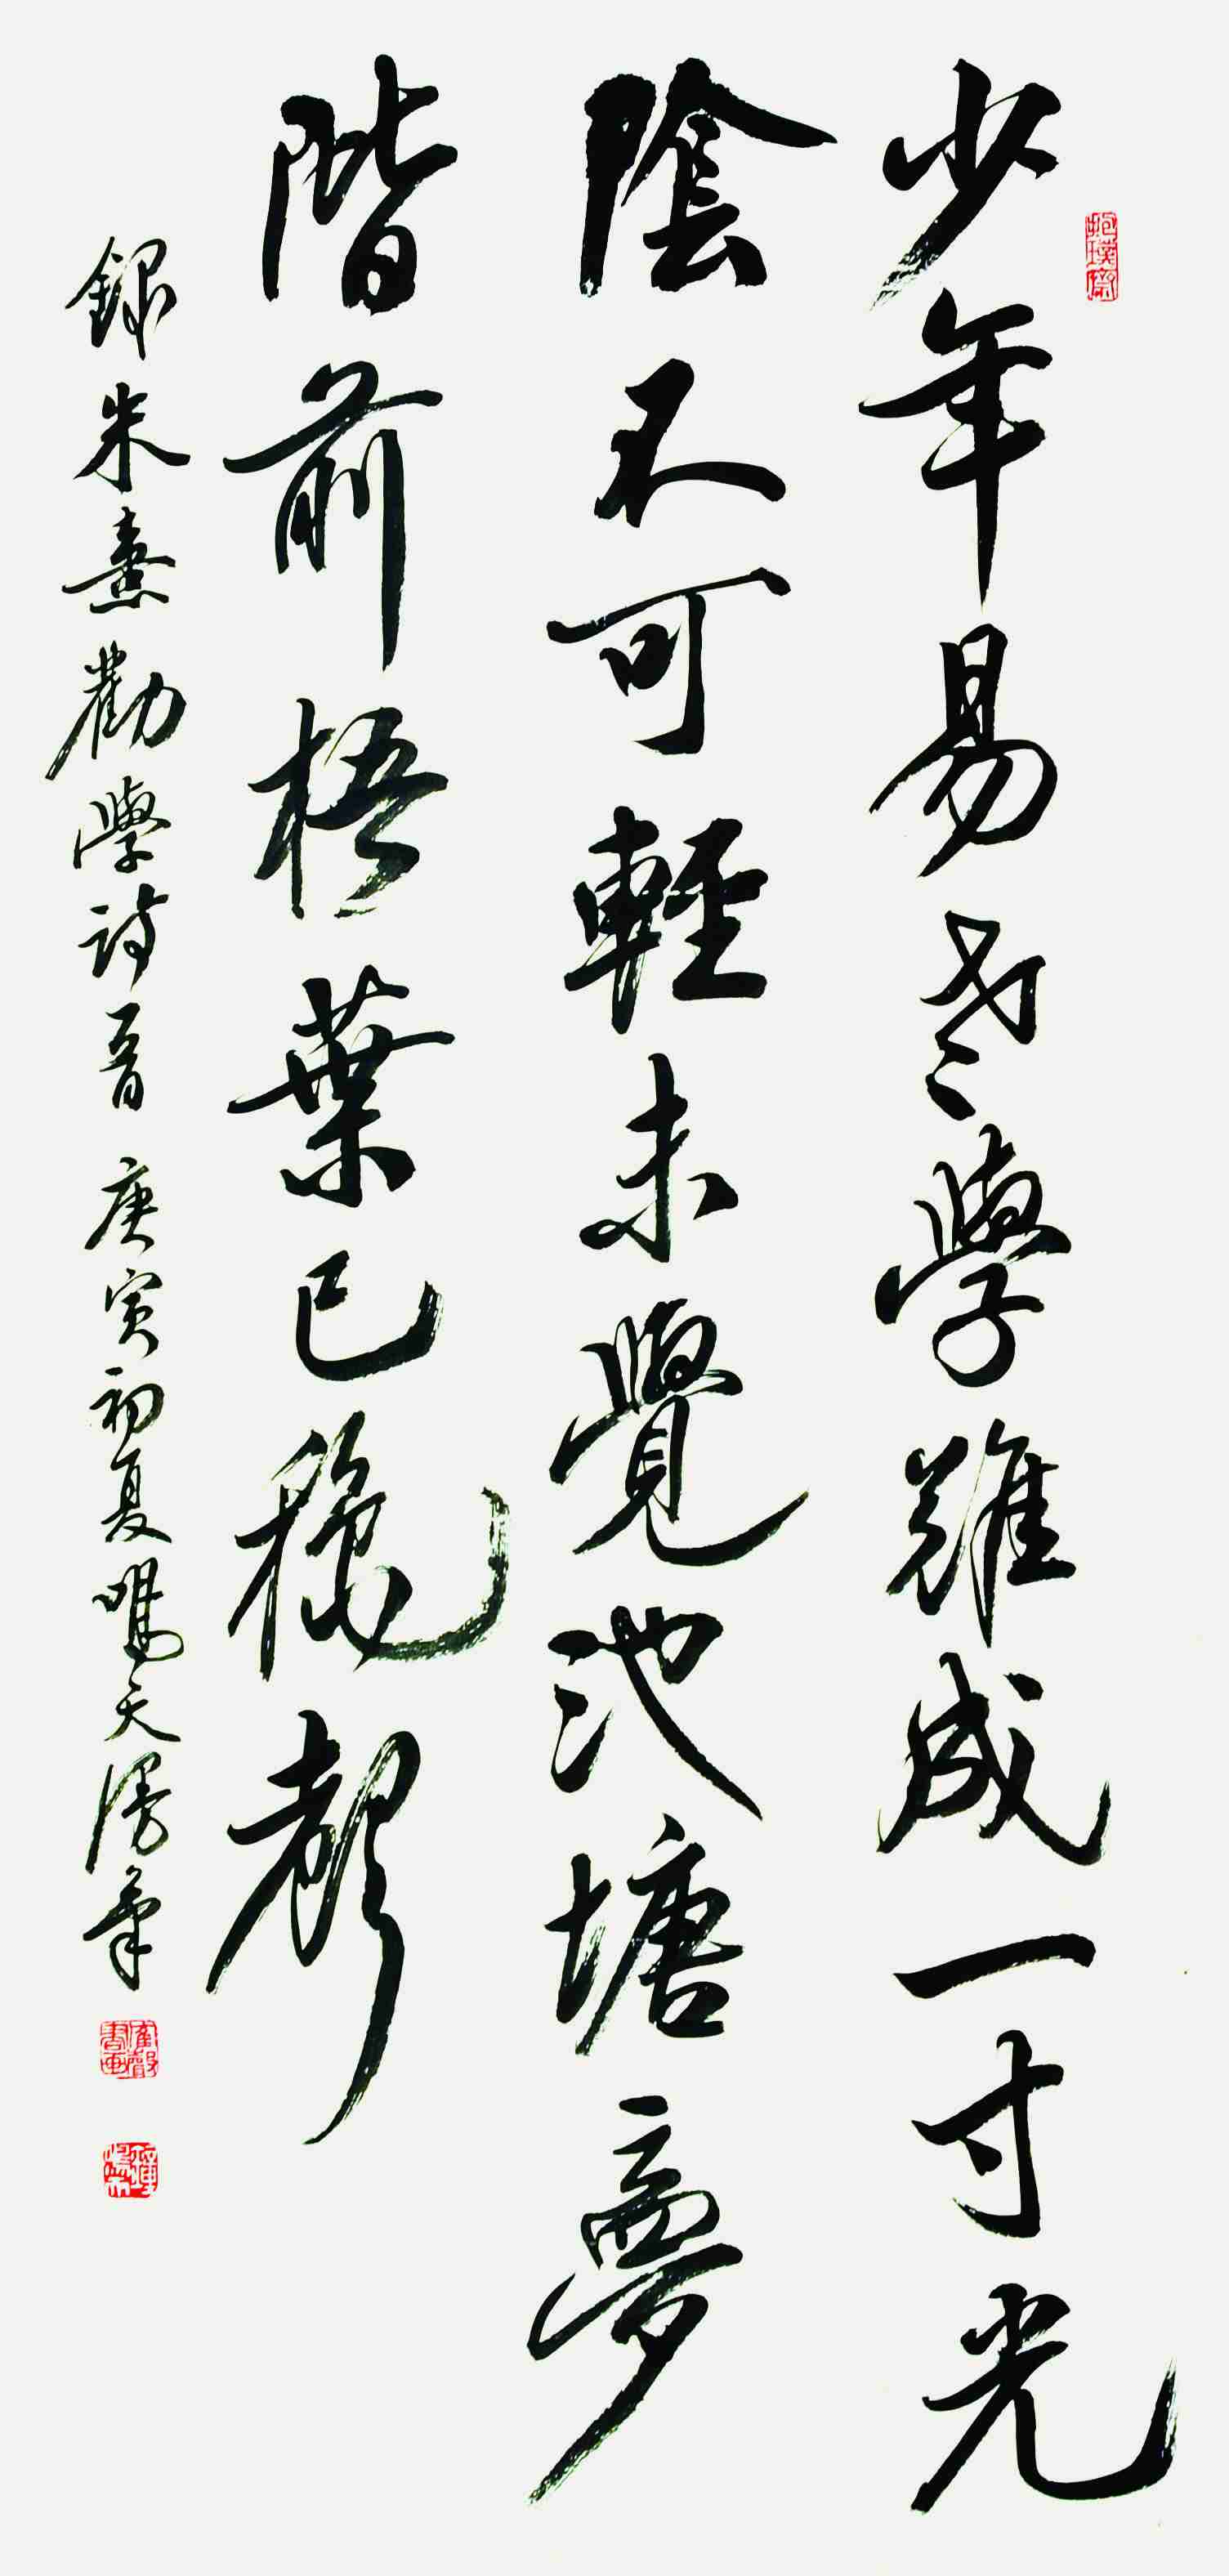 抱璞齋
少年易老學難成一寸光
陰不可輕未覺池塘夢
階前梧葉已秋聲
錄朱熹勸學詩一首 庚寅初夏鳴天漫筆